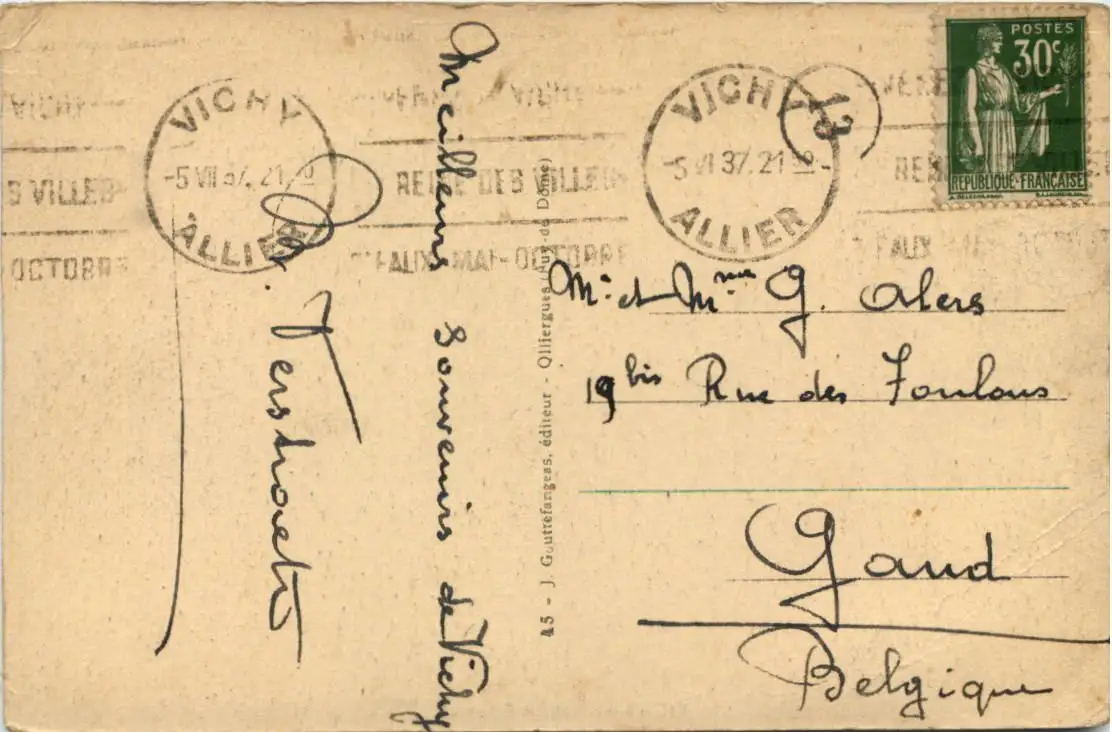 VICHY
-5 VII 37. 21
ALLIER
REINE DES VILLES
D'EAUX-MAI-OCTOBRE
VICHY
-5 VII 37. 21
ALLIER
13
POSTES
30c
REPUBLIQUE-FRANÇAISE
Meilleurs souvenirs de Vichy
45 - J. Gouttefangeas, éditeur - Olliergues (Puy-de Dôme)
Mr et Mme G.
19 bis Rue des Foulons
Gand
Belgique